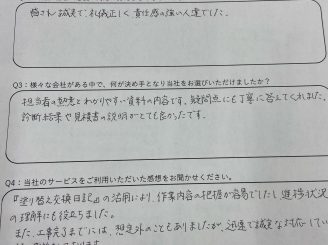 皆さん誠実で、礼儀正しく責任感の強い人達でした。
Q3：様々な会社がある中で、何が決め手となり当社をお選びいただけましたか？
担当者の熱意とわかりやすい資料の内容です。疑問点にも丁寧に答えてくれました。
診断結果や見積書の説明がとても良かったです。
Q4：当社のサービスをご利用いただいた感想をお聞かせください。
『塗り替え交換日記』の活用により、作業内容の把握が容易でしたし進捗状況
の理解にも役立ちました。
また、工事完了までには、想定外のこともありましたが、迅速で誠実な対応してい